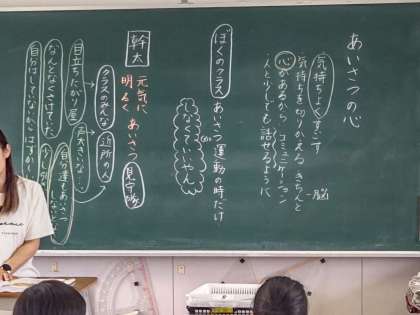 あいさつの心
気持ちよくすごす
気持ちを切りかえる きちんと
心があるから コミュニケーション
人と少しでも話せるように
脳
ぼくのクラス
あいさつ運動の時だけ
しなくていいやん
幹太
元気に
明るく あいさつ
見守隊
クラスのみんな
近所の人
目立ちたがり屋
声大きいな
なんとなくさけてた
自分達もあいさつ
しないと
少し
自分はしているかし はずかし